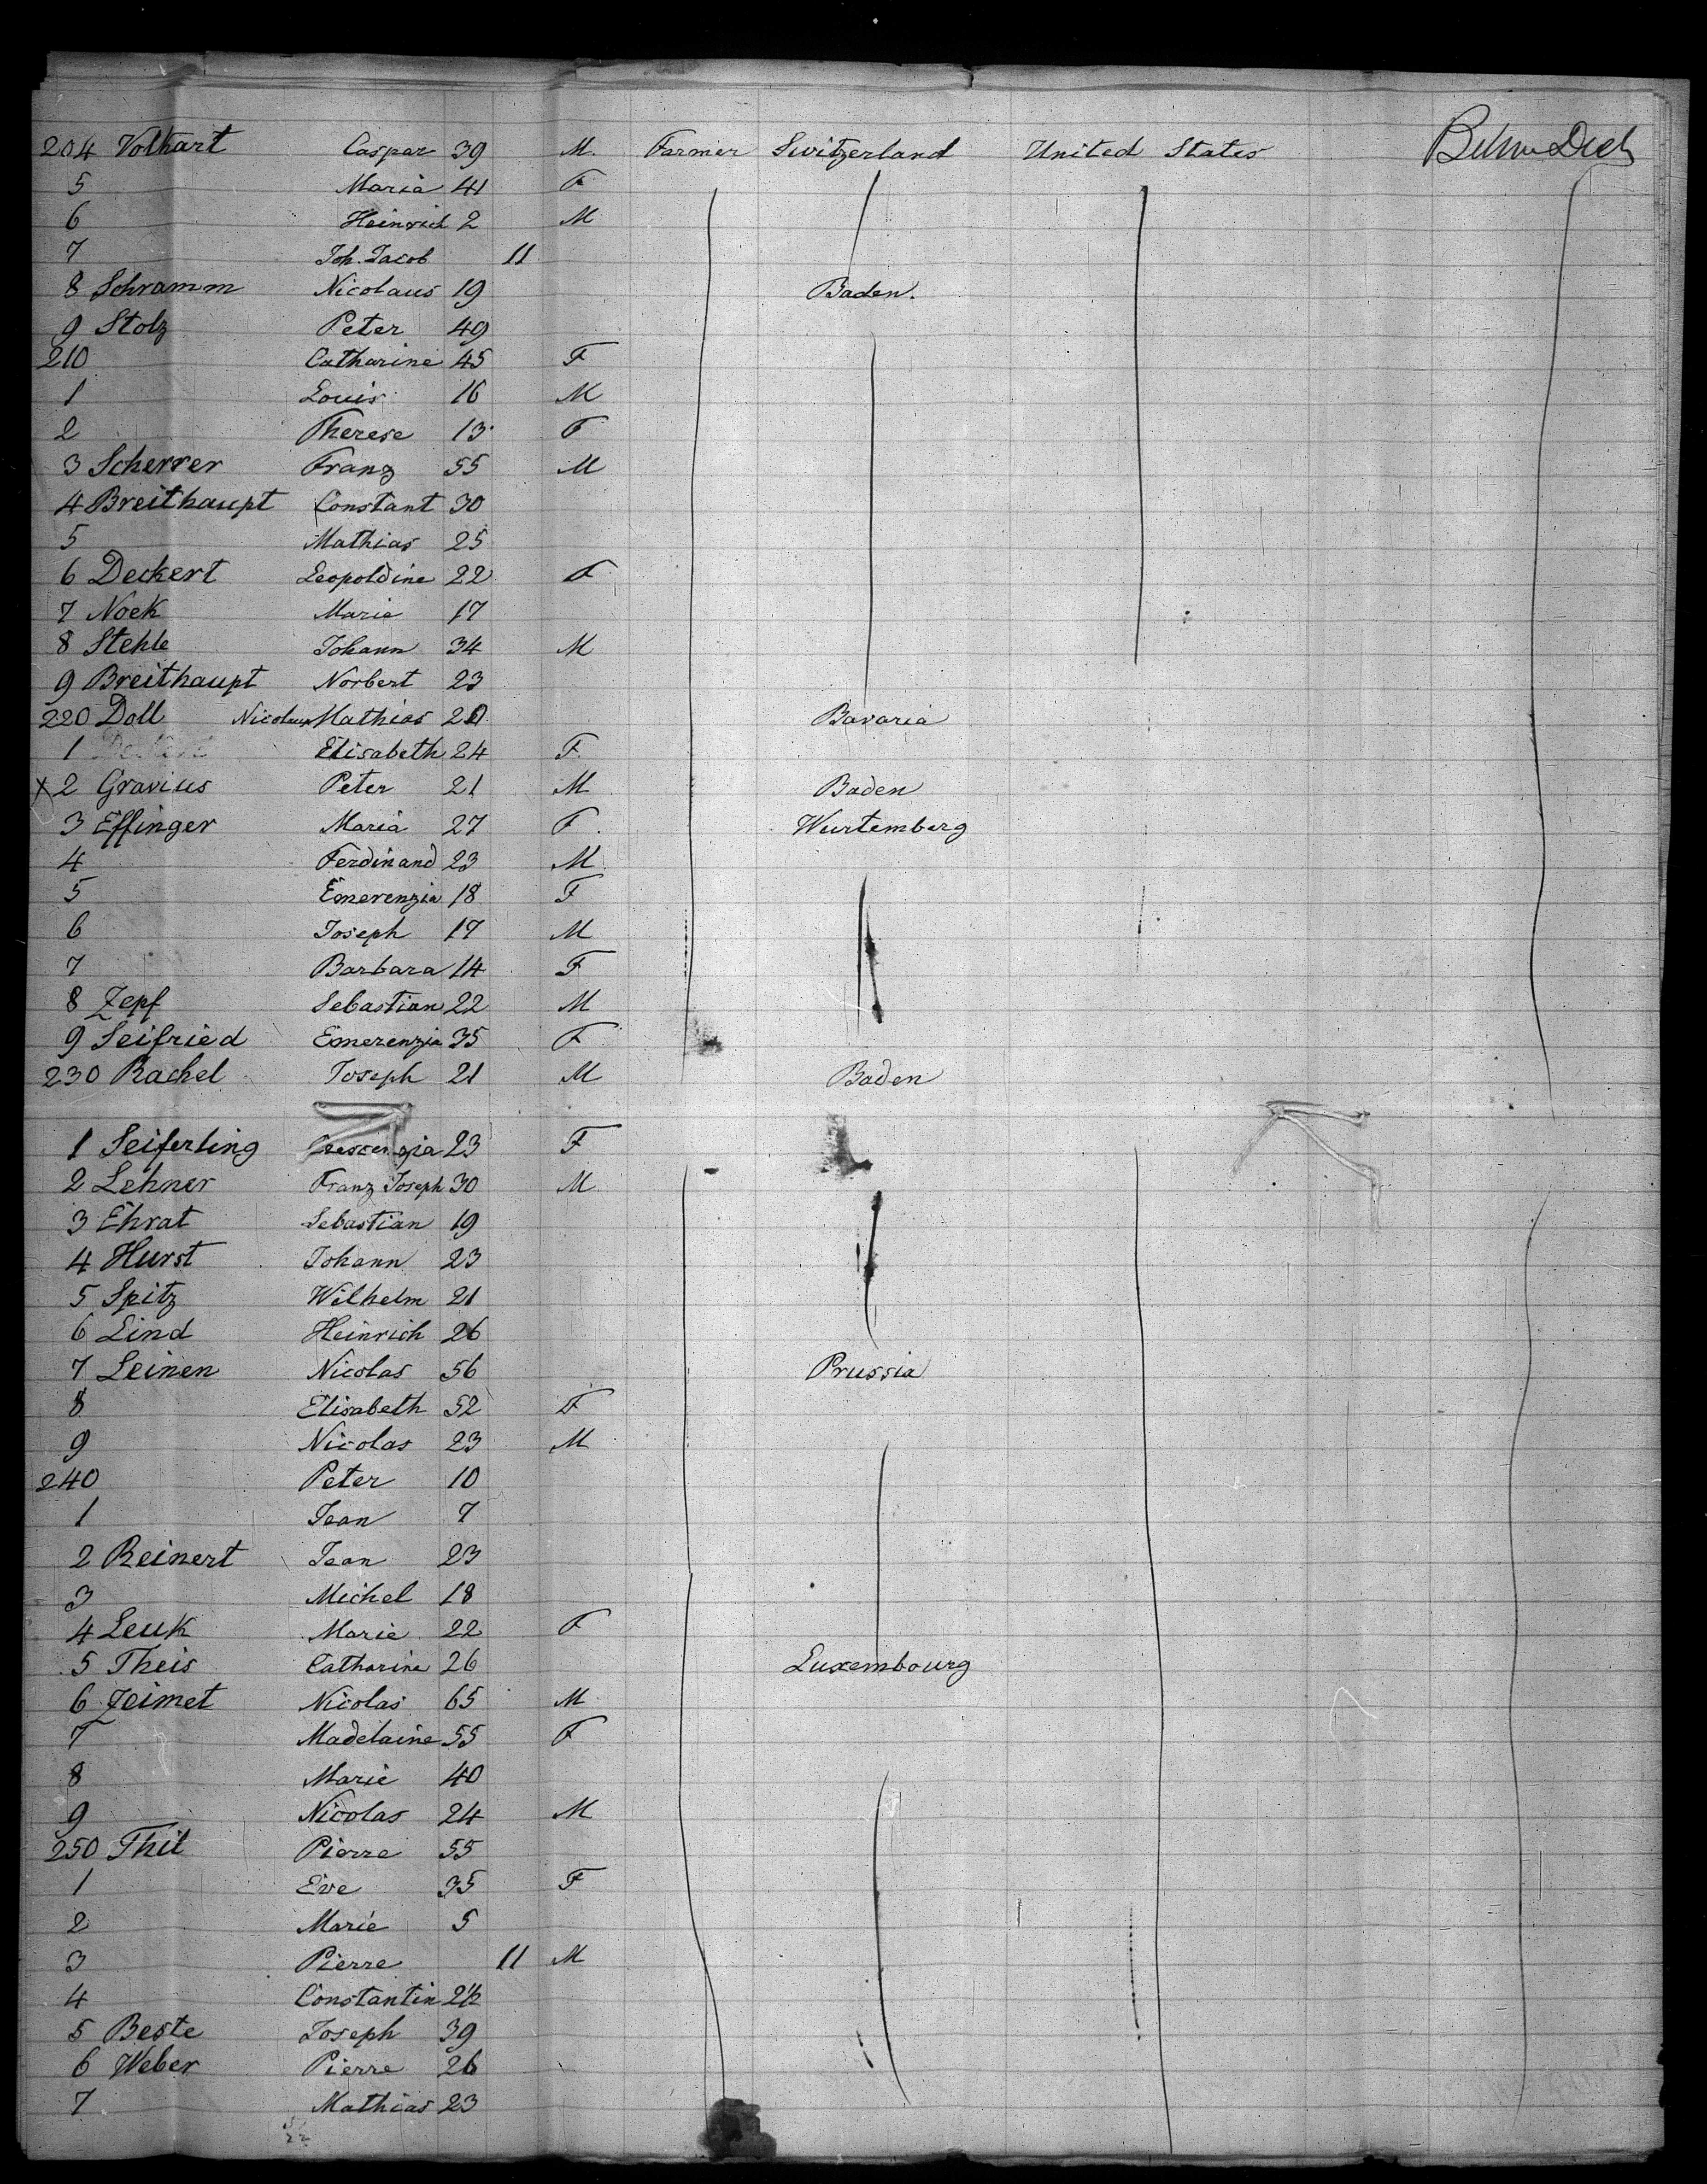 204 Volkart Caspar 39 M. Farmer Switzerland United States
5 Maria 41 F
6 Heinrich 2 M
7 Joh. Jacob 11
8 Schramm Nicolaus 19 Baden.
9 Stolz Peter 49
210 Catharine 45 F
1 Louis 16 M
2 Therese 13 F
3 Scherrer Franz 55 M
4 Breithaupt Constant 30
5 Mathias 25
6 Deckert Leopoldine 22 F
7 Noek Marie 17
8 Stehle Johann 34 M
9 Breithaupt Norbert 23
220 Doll Nicolaus Mathias Bavaria
1 Elisabeth 24 F.
x 2 Gravius Peter 21 M Baden
3 Effinger Maria 27 F. Wurtemberg
4 Ferdinand 23 M
5 Emerenzia 18 F
6 Joseph 17 M
7 Barbara 14 F
8 Zepf Sebastian 22 M
9 Seifried Emerenzia 35 F.
230 Rachel Joseph 21 M Baden
1 Seiferling Crescenzia 23 F
2 Lehner Franz Joseph 30 M
3 Ehrat Sebastian 19
4 Hurst Johann 23
5 Spitz Wilhelm 21
6 Lind Heinrich 26
7 Leinen Nicolas 56 Prussia
8 Elisabeth 52 F
9 Nicolas 23 M
240 Peter 10
1 Jean 7
2 Reinert Jean 23
3 Michel 18
4 Leuk Marie 22 F
5 Theis Catharine 26 Luxembourg
6 Zeimet Nicolas 65 M
7 Madelaine 55 F
8 Marie 40
9 Nicolas 24 M
250 Thil Pierre 55
1 Eve 35 F
2 Marie 5
3 Pierre 11 M
4 Constantin
5 Beste Joseph 39
6 Weber Pierre 26
7 Mathias 23